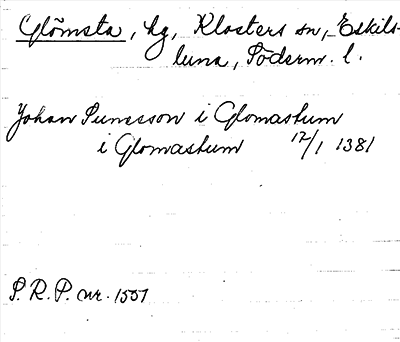 Glömsta, hg, Klosters sn, Eskils-
tuna, Söderm. l.
Johan Sunesson i Glomastum
i Glomastum 12/1 1381
S. R. P. nr. 1557